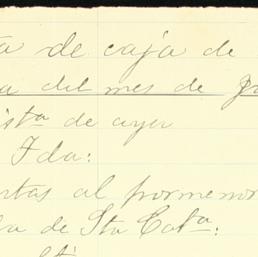 ta de caja de
a del mes de
ista de ayer
Ida:
ntas al pormenor
la de Sta Cata: